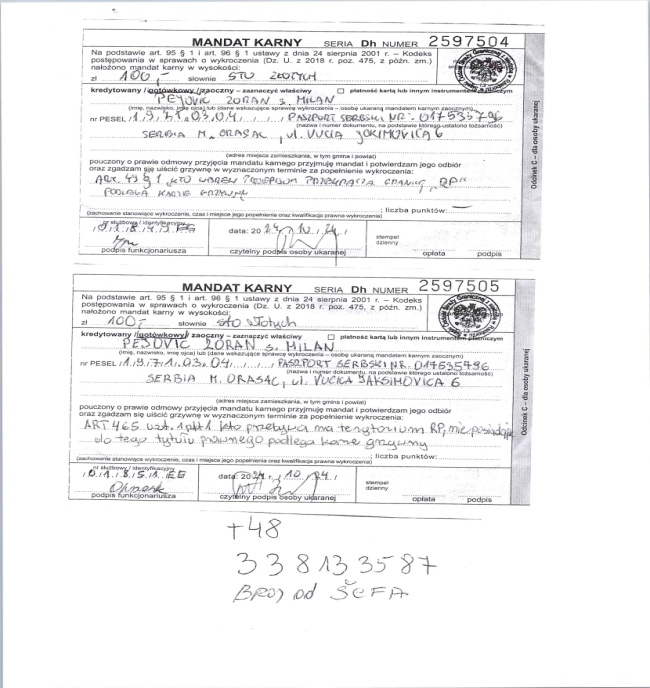 MANDAT KARNY SERIA Dh NUMER 2597504
Na podstawie art. 95 § 1 i art. 96 § 1 ustawy z dnia 24 sierpnia 2001 r. – Kodeks
postępowania w sprawach o wykroczenia (Dz. U. z 2018 r. poz. 475, z późn. zm.)
nałożono mandat karny w wysokości:
zł 100,- słownie STO ZŁOTYCH
kredytowany / gotówkowy / zaoczny – zaznaczyć właściwy płatność kartą lub innym instrumentem płatniczym
PEJOVIC ZORAN s. MILAN
(imię, nazwisko, imię ojca) lub (dane wskazujące sprawcę wykroczenia – osobę ukaraną mandatem karnym zaocznym)
nr PESEL 1971.03.04 PASZPORT SERBSKI NR. 017535796
(nazwa i numer dokumentu, na podstawie którego ustalono tożsamość)
SERBIA M. ORASAC, ul. VUCIA JOKIMOVICA 6
(adres miejsca zamieszkania, w tym gmina i powiat)
pouczony o prawie odmowy przyjęcia mandatu karnego i potwierdzam jego odbiór
oraz zgadzam się uiścić grzywnę w wyznaczonym terminie za popełnienie wykroczenia:
ART. 49 § 1 "KTO WBREW PRZEPISOM PRZEKRACZA GRANICĘ "RP"
PODLEGA KARZE GRZYWNY
; liczba punktów: —
(zachowanie stanowiące wykroczenie, czas i miejsce jego popełnienia oraz kwalifikacja prawna wykroczenia)
nr służbowy / identyfikacyjny
data: 20 24, 10, 24
podpis funkcjonariusza
czytelny podpis osoby ukaranej
stempel
dzienny
opłata podpis
Odcinek C – dla osoby ukaranej
MANDAT KARNY SERIA Dh NUMER 2597505
Na podstawie art. 95 § 1 i art. 96 § 1 ustawy z dnia 24 sierpnia 2001 r. – Kodeks
postępowania w sprawach o wykroczenia (Dz. U. z 2018 r. poz. 475, z późn. zm.)
nałożono mandat karny w wysokości:
zł 100,- słownie sto złotych
kredytowany / gotówkowy / zaoczny – zaznaczyć właściwy płatność kartą lub innym instrumentem płatniczym
PEJOVIC ZORAN s. MILAN
(imię, nazwisko, imię ojca) lub (dane wskazujące sprawcę wykroczenia – osobę ukaraną mandatem karnym zaocznym)
nr PESEL 1971.03.04 PASZPORT SERBSKI NR. 017535796
(nazwa i numer dokumentu, na podstawie którego ustalono tożsamość)
SERBIA M. ORASAC, ul. VUCIKA JAKSIMOVICA 6
(adres miejsca zamieszkania, w tym gmina i powiat)
pouczony o prawie odmowy przyjęcia mandatu karnego i potwierdzam jego odbiór
oraz zgadzam się uiścić grzywnę w wyznaczonym terminie za popełnienie wykroczenia:
ART 465 ust. 1 pkt 1 kto przebywa na terytorium RP, nie posiadając
do tego tytułu prawnego podlega karze grzywny
; liczba punktów:
(zachowanie stanowiące wykroczenie, czas i miejsce jego popełnienia oraz kwalifikacja prawna wykroczenia)
nr służbowy / identyfikacyjny
data: 20 24, 10, 24
podpis funkcjonariusza
czytelny podpis osoby ukaranej
stempel
dzienny
opłata podpis
Odcinek C – dla osoby ukaranej
+48
338133587
BROJ od ŠEFA